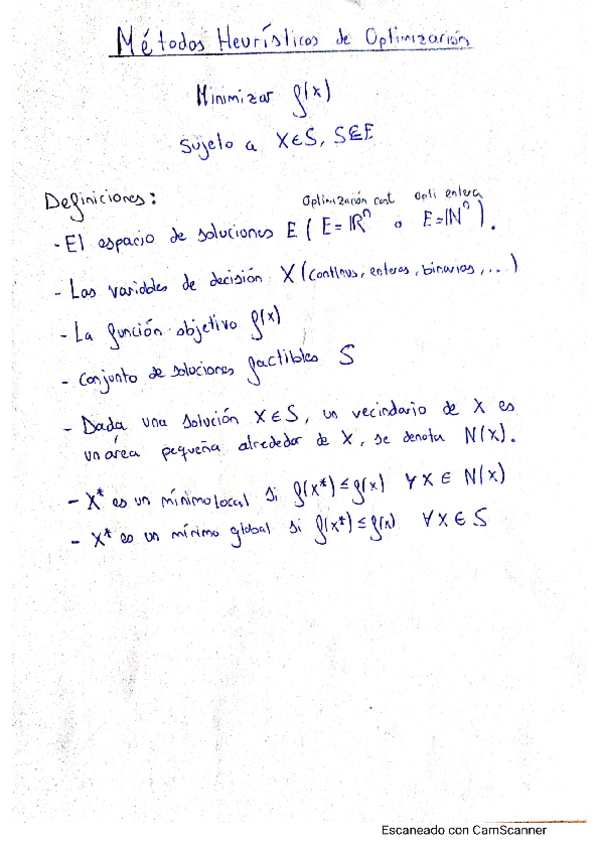 Métodos Heurísticos de Optimización
Minimizar f(x)
Sujeto a X∈S, S⊆E
Definiciones:
Optimización cont opti entera
- El espacio de soluciones E ( E=ℝⁿ o E=ℕⁿ ).
- Las variables de decisión X (continuas, enteras, binarias, ...)
- La función objetivo f(x)
- Conjunto de soluciones factibles S
- Dada una solución X∈S, un vecindario de X es
un área pequeña alrededor de X, se denota N(x).
- X* es un mínimo local si f(x*) ≤ f(x) ∀ X ∈ N(x)
- X* es un mínimo global si f(x*) ≤ f(x) ∀ X ∈ S
Escaneado con CamScanner